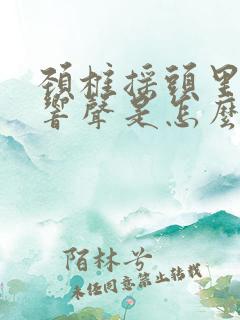 頸椎搖頭里
響聲是怎麼
陌林兮
未经同意禁止转载